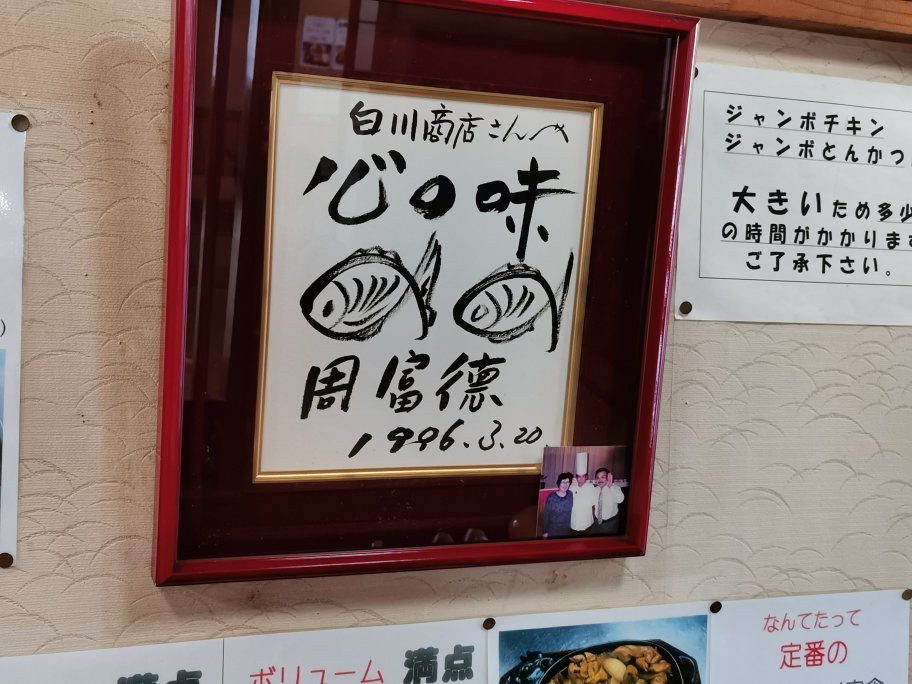 白川商店さんへ
心の味
周富徳
1996.3.20.
ジャンボチキン
ジャンボとんかつ
大きいため多少
の時間がかかります
ご了承下さい。
)
満点
ボリューム満点
なんてたって
定番の